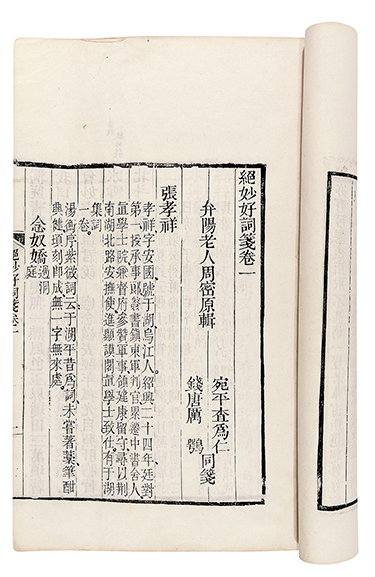 絕妙好詞箋卷一
弁陽老人周密原輯
宛平查爲仁
錢唐厲鶚
同箋
張孝祥
孝祥字安國號于湖烏江人紹興二十四年廷對
第一授承事郎簽書鎮東軍判官累遷中書舍人
直學士院兼都督府參贊軍事領建康留守尋以荆
南湖北路安撫使進顯謨閣直學士致仕有于湖
集詞
一卷
湯衡序紫微詞云于湖平昔爲詞未嘗著藁筆酣
興健頃刻即成無一字無來處
念奴嬌過洞庭
絕妙好詞箋卷一
一